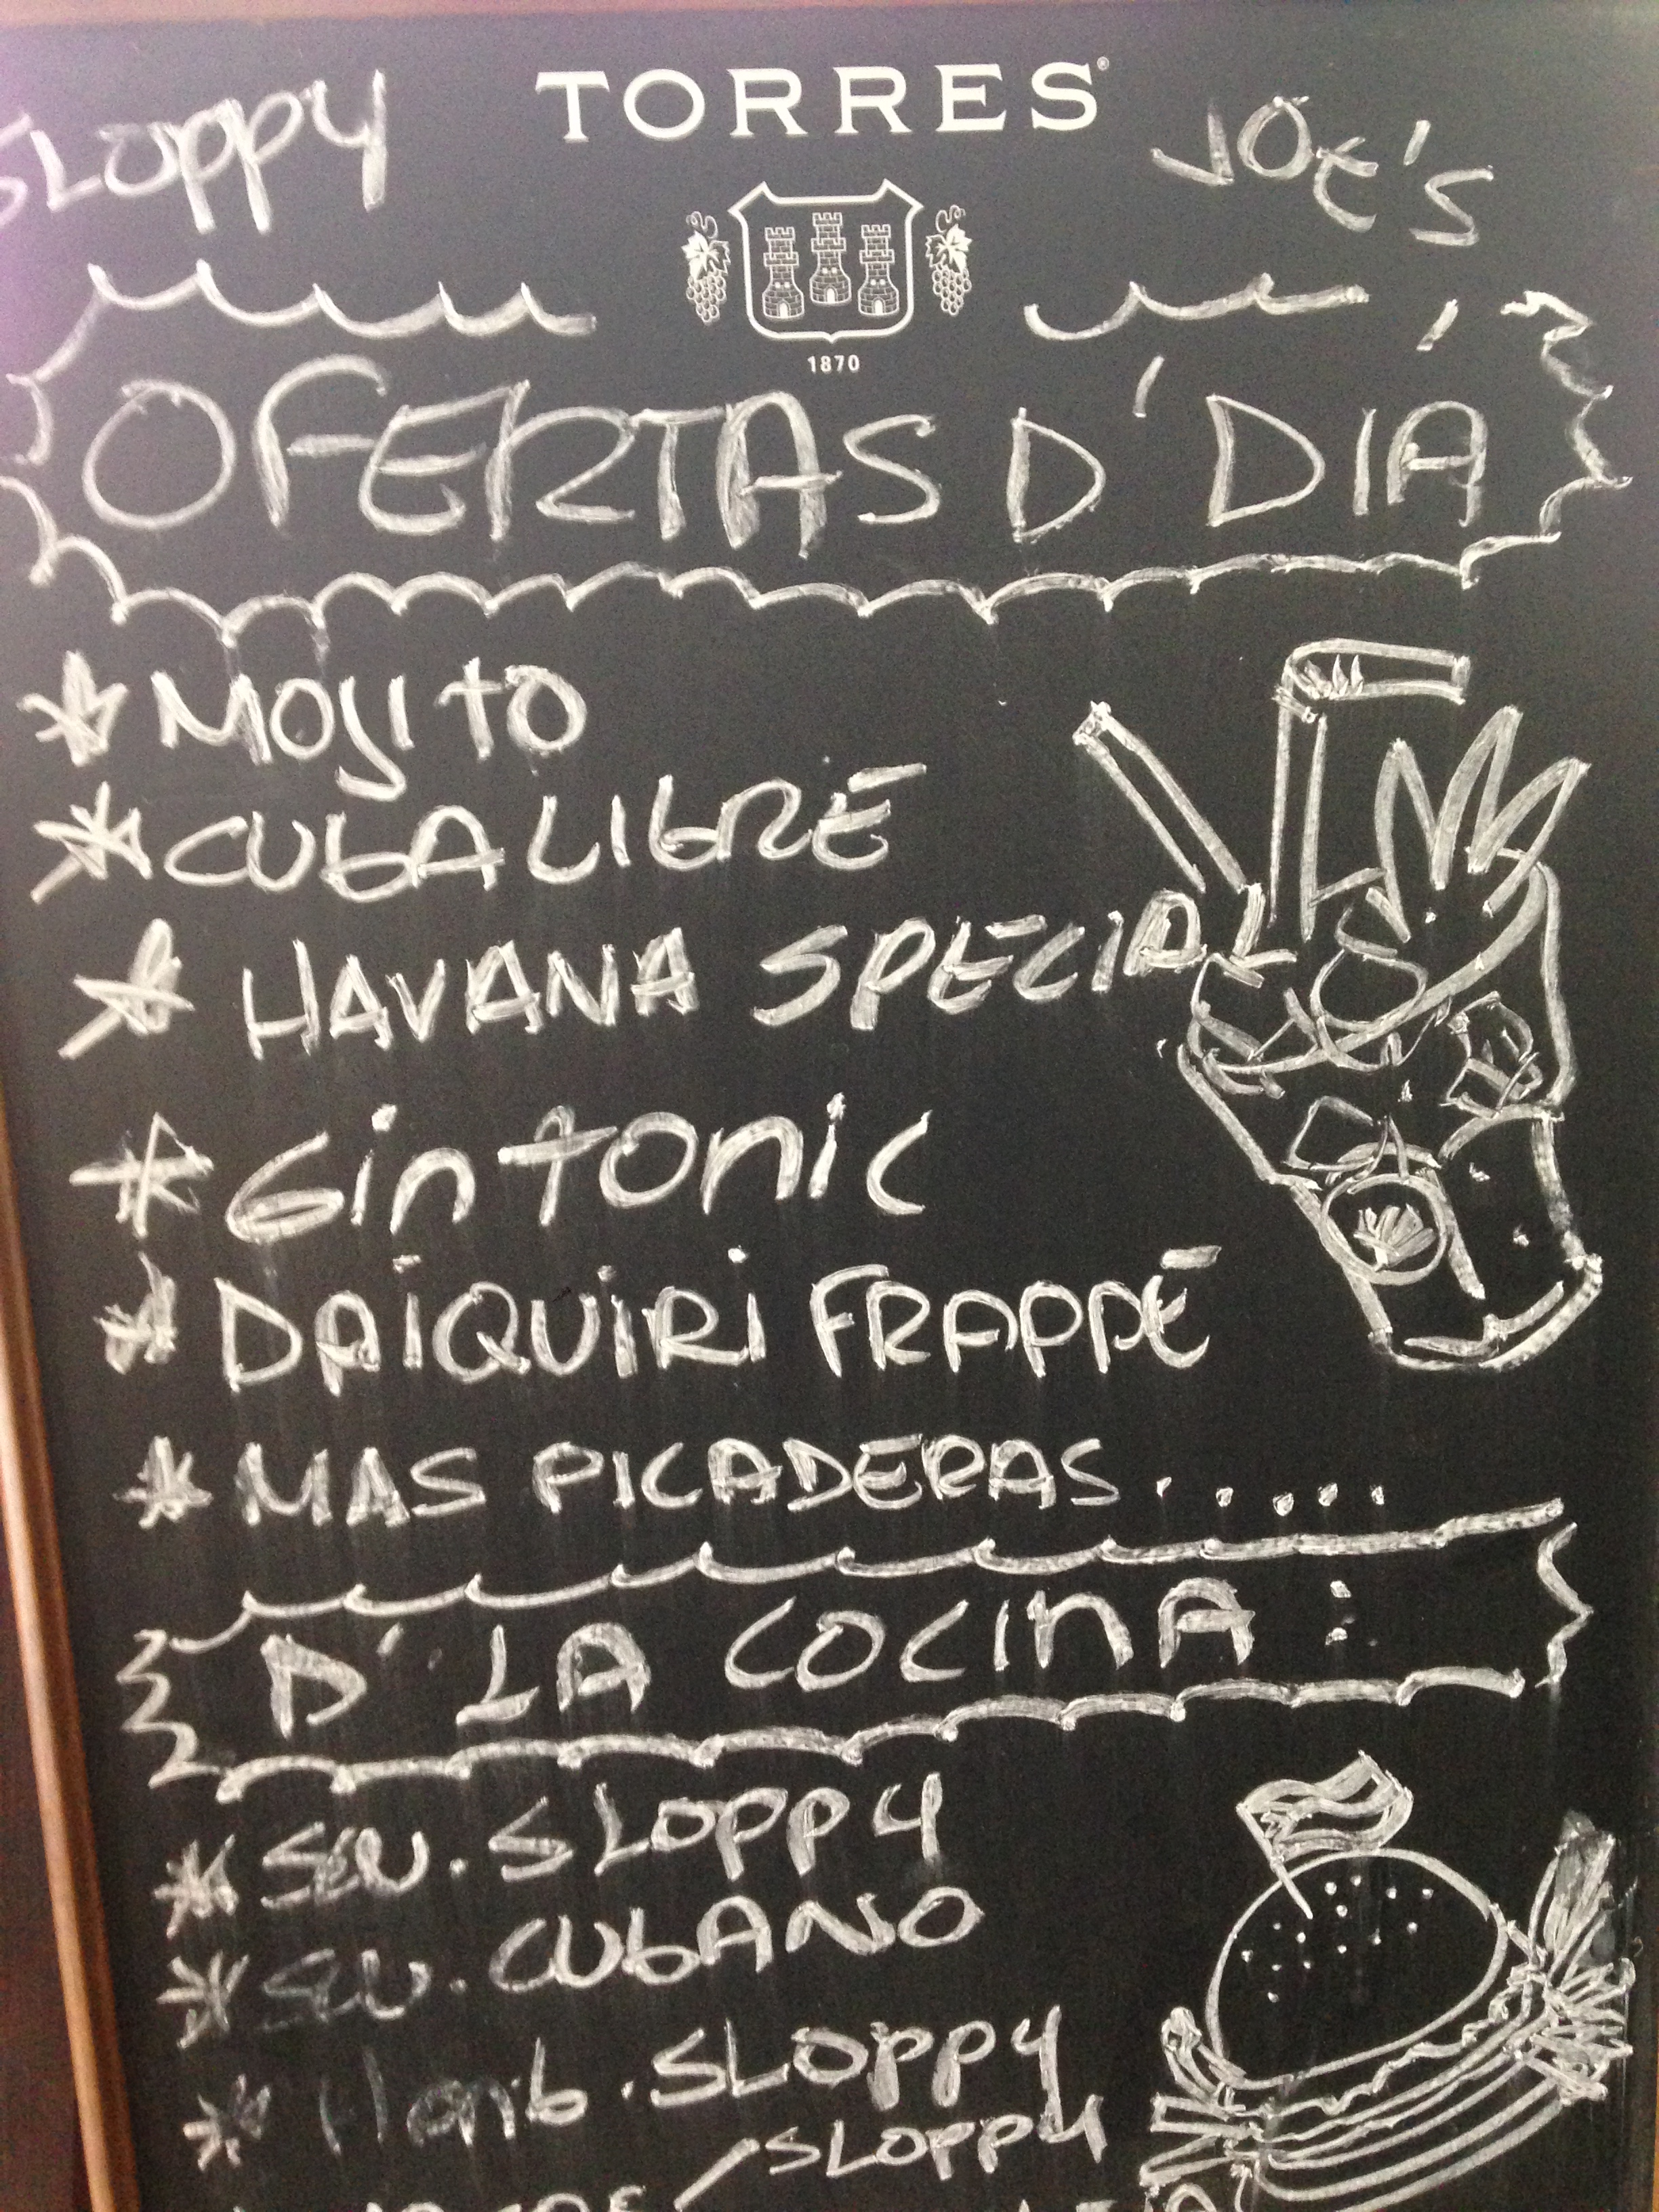 TORRES®
SLOPPY JOE'S
1870
OFERTAS D' DIA
* MOJITO
* CUBA LIBRE
* HAVANA SPECIAL
* Gin tonic
* DAIQUIRI FRAPPÉ
* MAS PICADERAS.....
D' LA COCINA:
* SW. SLOPPY
* SW. CUBANO
* Hamb. SLOPPY
/SLOPPY